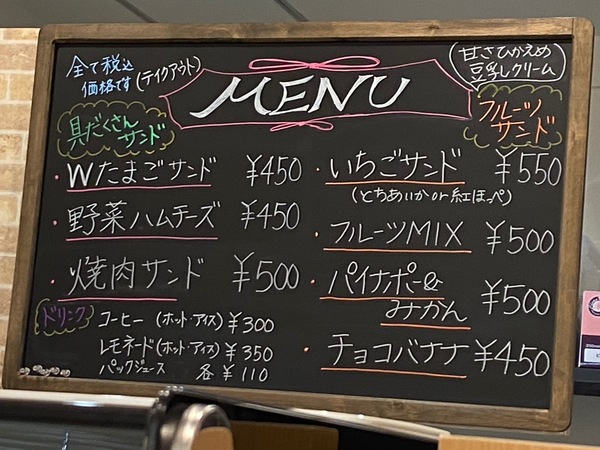 全て税込
価格です
(テイクアウト)
MENU
甘さひかえめ
豆乳クリーム
具だくさん
サンド
・Wたまごサンド ¥450
・野菜ハムチーズ ¥450
・焼肉サンド ¥500
ドリンク
コーヒー (ホット・アイス) ¥300
レモネード(ホット・アイス) ¥350
パックジュース 各 ¥110
フルーツ
サンド
・いちごサンド ¥550
(とちあいか or 紅ほっぺ)
・フルーツMIX ¥500
・パイナポー&
みかん ¥500
・チョコバナナ ¥450